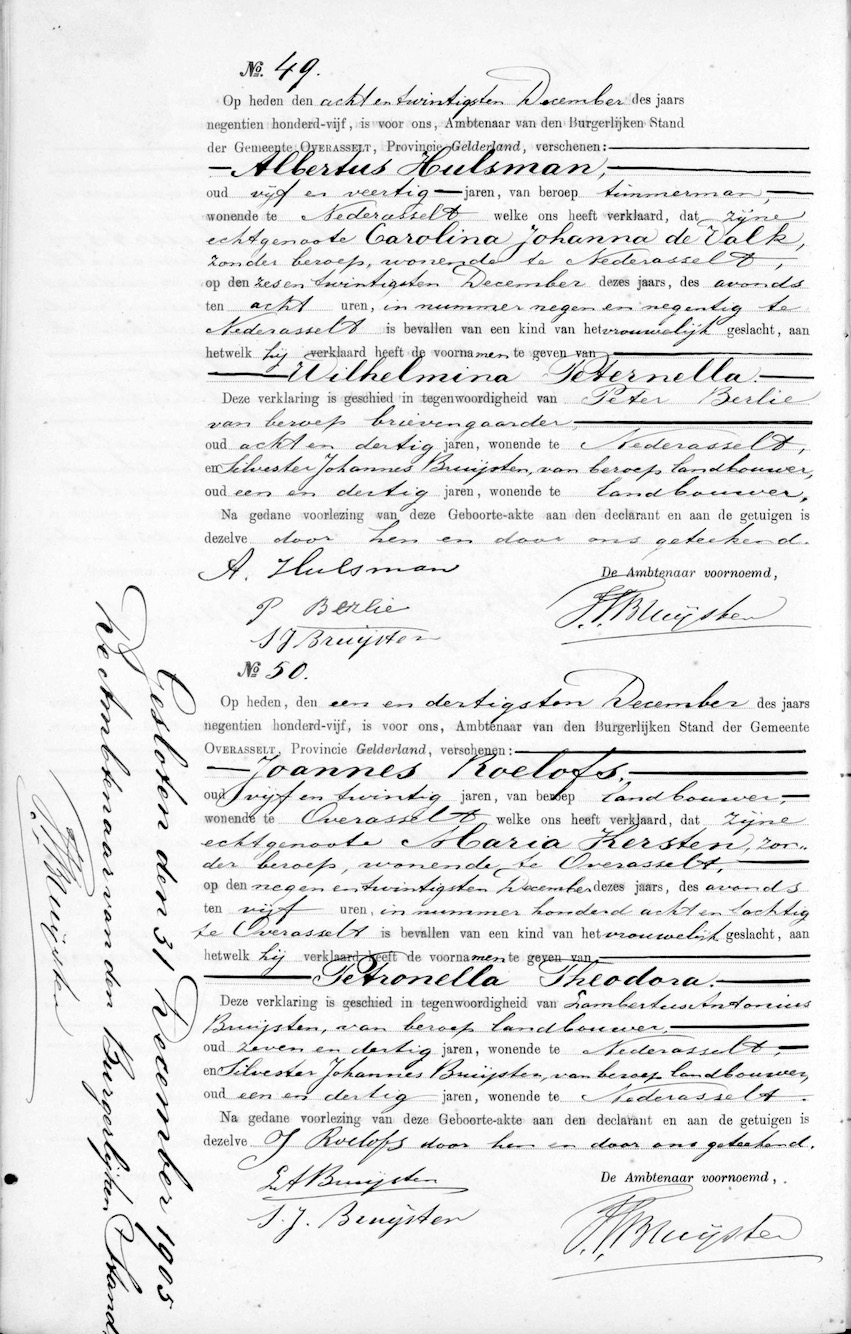 No. 49.
Op heden den acht en twintigsten December des jaars
negentien honderd-vijf, is voor ons, Ambtenaar van den Burgerlijken Stand
der Gemeente OVERASSELT, Provincie Gelderland, verschenen:
Albertus Hulsman,
oud vijf en veertig jaren, van beroep timmerman,
wonende te Nederasselt welke ons heeft verklaard, dat zijne
echtgenoote Carolina Johanna de Valk,
zonder beroep, wonende te Nederasselt,
op den zes en twintigsten December dezes jaars, des avonds
ten acht uren, in nummer negen en negentig te
Nederasselt is bevallen van een kind van het vrouwelijk geslacht, aan
hetwelk hij verklaard heeft de voornamen te geven van
Wilhelmina Peternella.
Deze verklaring is geschied in tegenwoordigheid van Peter Berlie
van beroep brievengaarder
oud acht en dertig jaren, wonende te Nederasselt,
en Silvester Johannes Bruijsten, van beroep landbouwer,
oud een en dertig jaren, wonende te landbouwer,
Na gedane voorlezing van deze Geboorte-akte aan den declarant en aan de getuigen is
dezelve door hen en door ons geteekend.
A. Hulsman
De Ambtenaar voornoemd,
P Berlie
Bruijsten
S J Bruijsten
No 50.
Op heden, den een en dertigsten December des jaars
negentien honderd-vijf, is voor ons, Ambtenaar van den Burgerlijken Stand der Gemeente
OVERASSELT, Provincie Gelderland, verschenen:
Joannes Roelofs,
oud vijf en twintig jaren, van beroep landbouwer,
wonende te Overasselt welke ons heeft verklaard, dat zijne
echtgenoote Maria Kersten, zon-
der beroep, wonende te Overasselt,
op den negen en twintigsten December dezes jaars, des avonds
ten vijf uren, in nummer honderd acht en tachtig
te Overasselt is bevallen van een kind van het vrouwelijk geslacht, aan
hetwelk hij verklaard heeft de voornamen te geven van
Petronella Theodora.
Deze verklaring is geschied in tegenwoordigheid van Lambertus Antonius
Bruijsten, van beroep landbouwer,
oud zeven en dertig jaren, wonende te Nederasselt,
en Silvester Johannes Bruijsten, van beroep landbouwer,
oud een en dertig jaren, wonende te Nederasselt.
Na gedane voorlezing van deze Geboorte-akte aan den declarant en aan de getuigen is
dezelve J Roelofs door hen en door ons geteekend.
L A Bruijsten
De Ambtenaar voornoemd,
S. J. Bruijsten
Bruijsten
Gesloten den 31 December 1905
De Ambtenaar van den Burgerlijken Stand,
Bruijsten